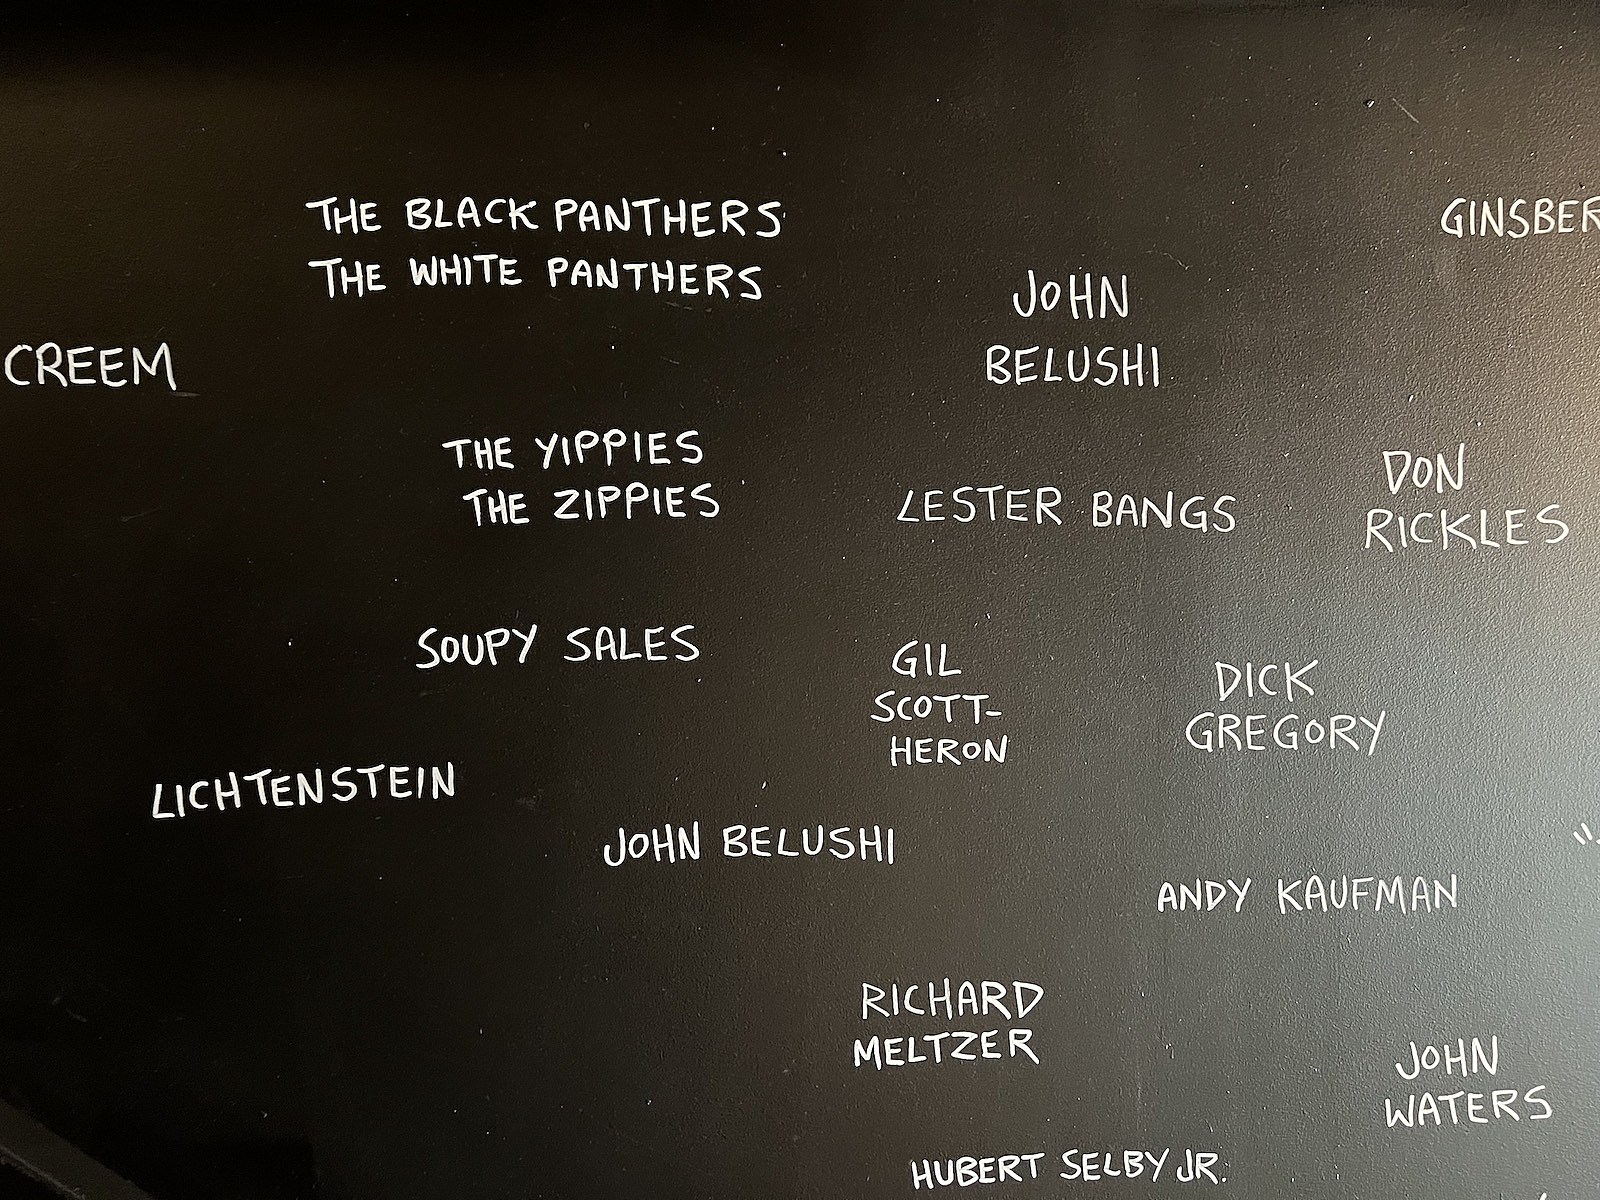 THE BLACK PANTHERS
THE WHITE PANTHERS
GINSBER
JOHN
BELUSHI
CREEM
THE YIPPIES
THE ZIPPIES
LESTER BANGS
DON
RICKLES
SOUPY SALES
GIL
SCOTT-
HERON
DICK
GREGORY
LICHTENSTEIN
JOHN BELUSHI
ANDY KAUFMAN
RICHARD
MELTZER
JOHN
WATERS
HUBERT SELBY JR.